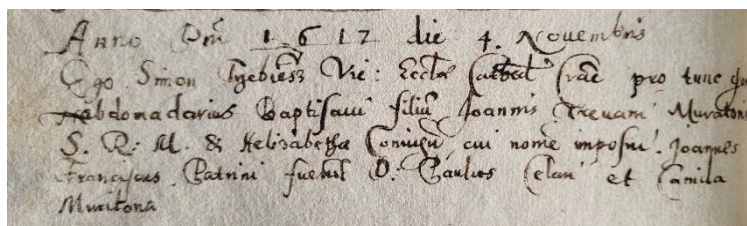 Anno Dni 1612 die 4. Nouembris
Ego Simon Vic: Eccłae Cathedˡ Crac pro tunc
Hebdomadarius Baptisaui filiū Joannis Treuani Muratoris
S. R. M. & Helisabethae Coniugū, cui nome imposui. Joannes
Franciscus. Patrini fuerūt D: Paulus Celari et Camila
Muritona